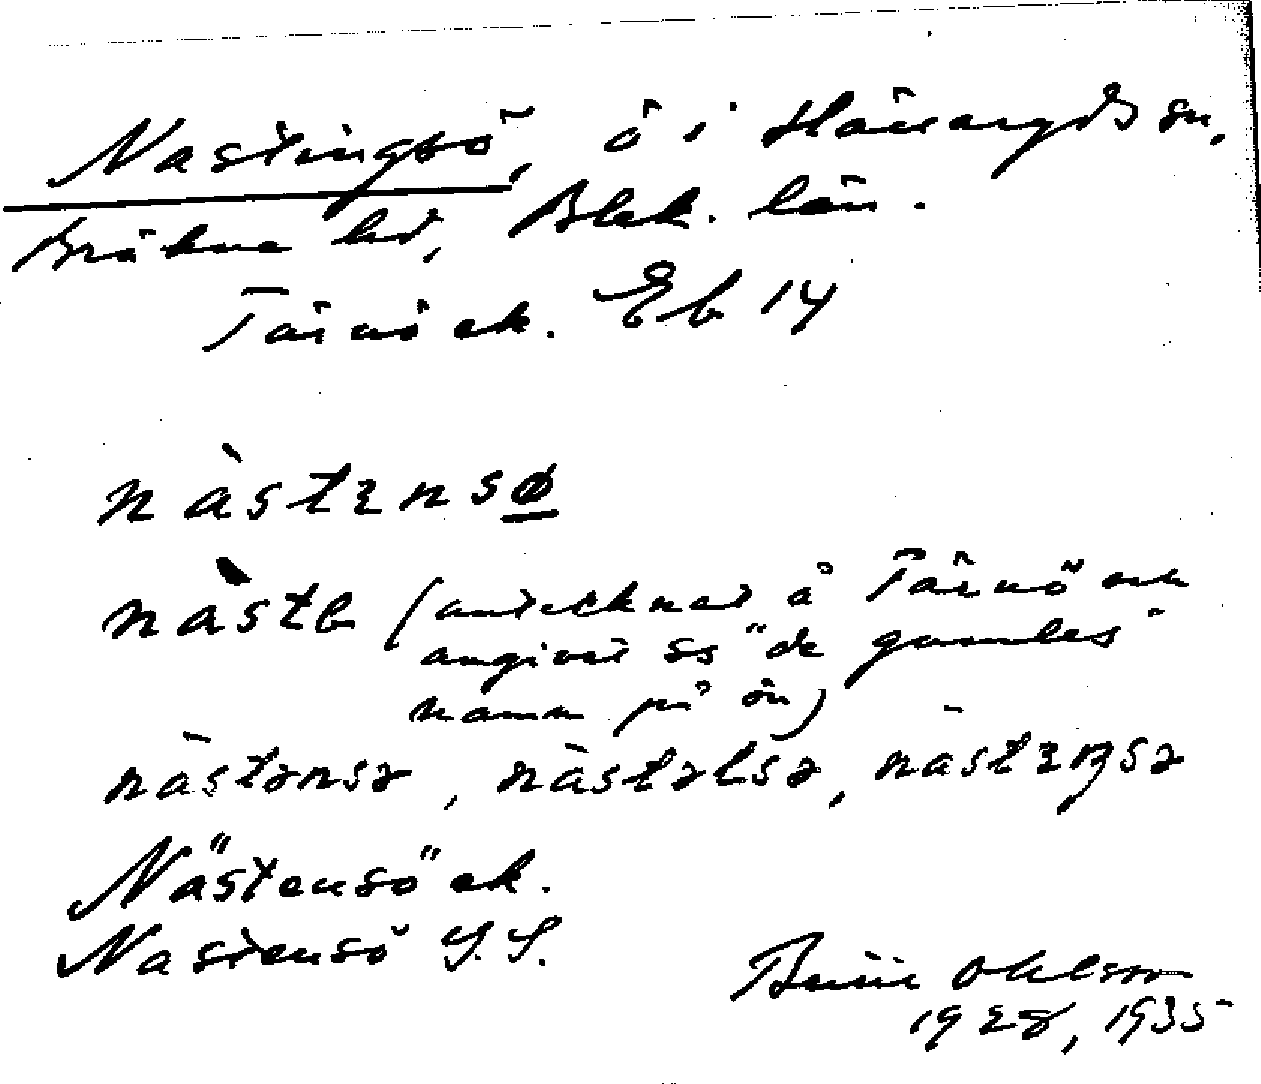 Nastingsö, ö i Hällaryds sn,
Bräkne hd, Blek. län.
Tärnö ek. Eb 14
nàstɛnsø
nàste (antecknat å Tärnö och
angivet ss "de gamles"
namn på ön)
nàstənsə, nàstəlsə, nàstɛŋsə
Nästensö ek.
Nastensö S.S.
Bertil Ohlsson
1928, 1935